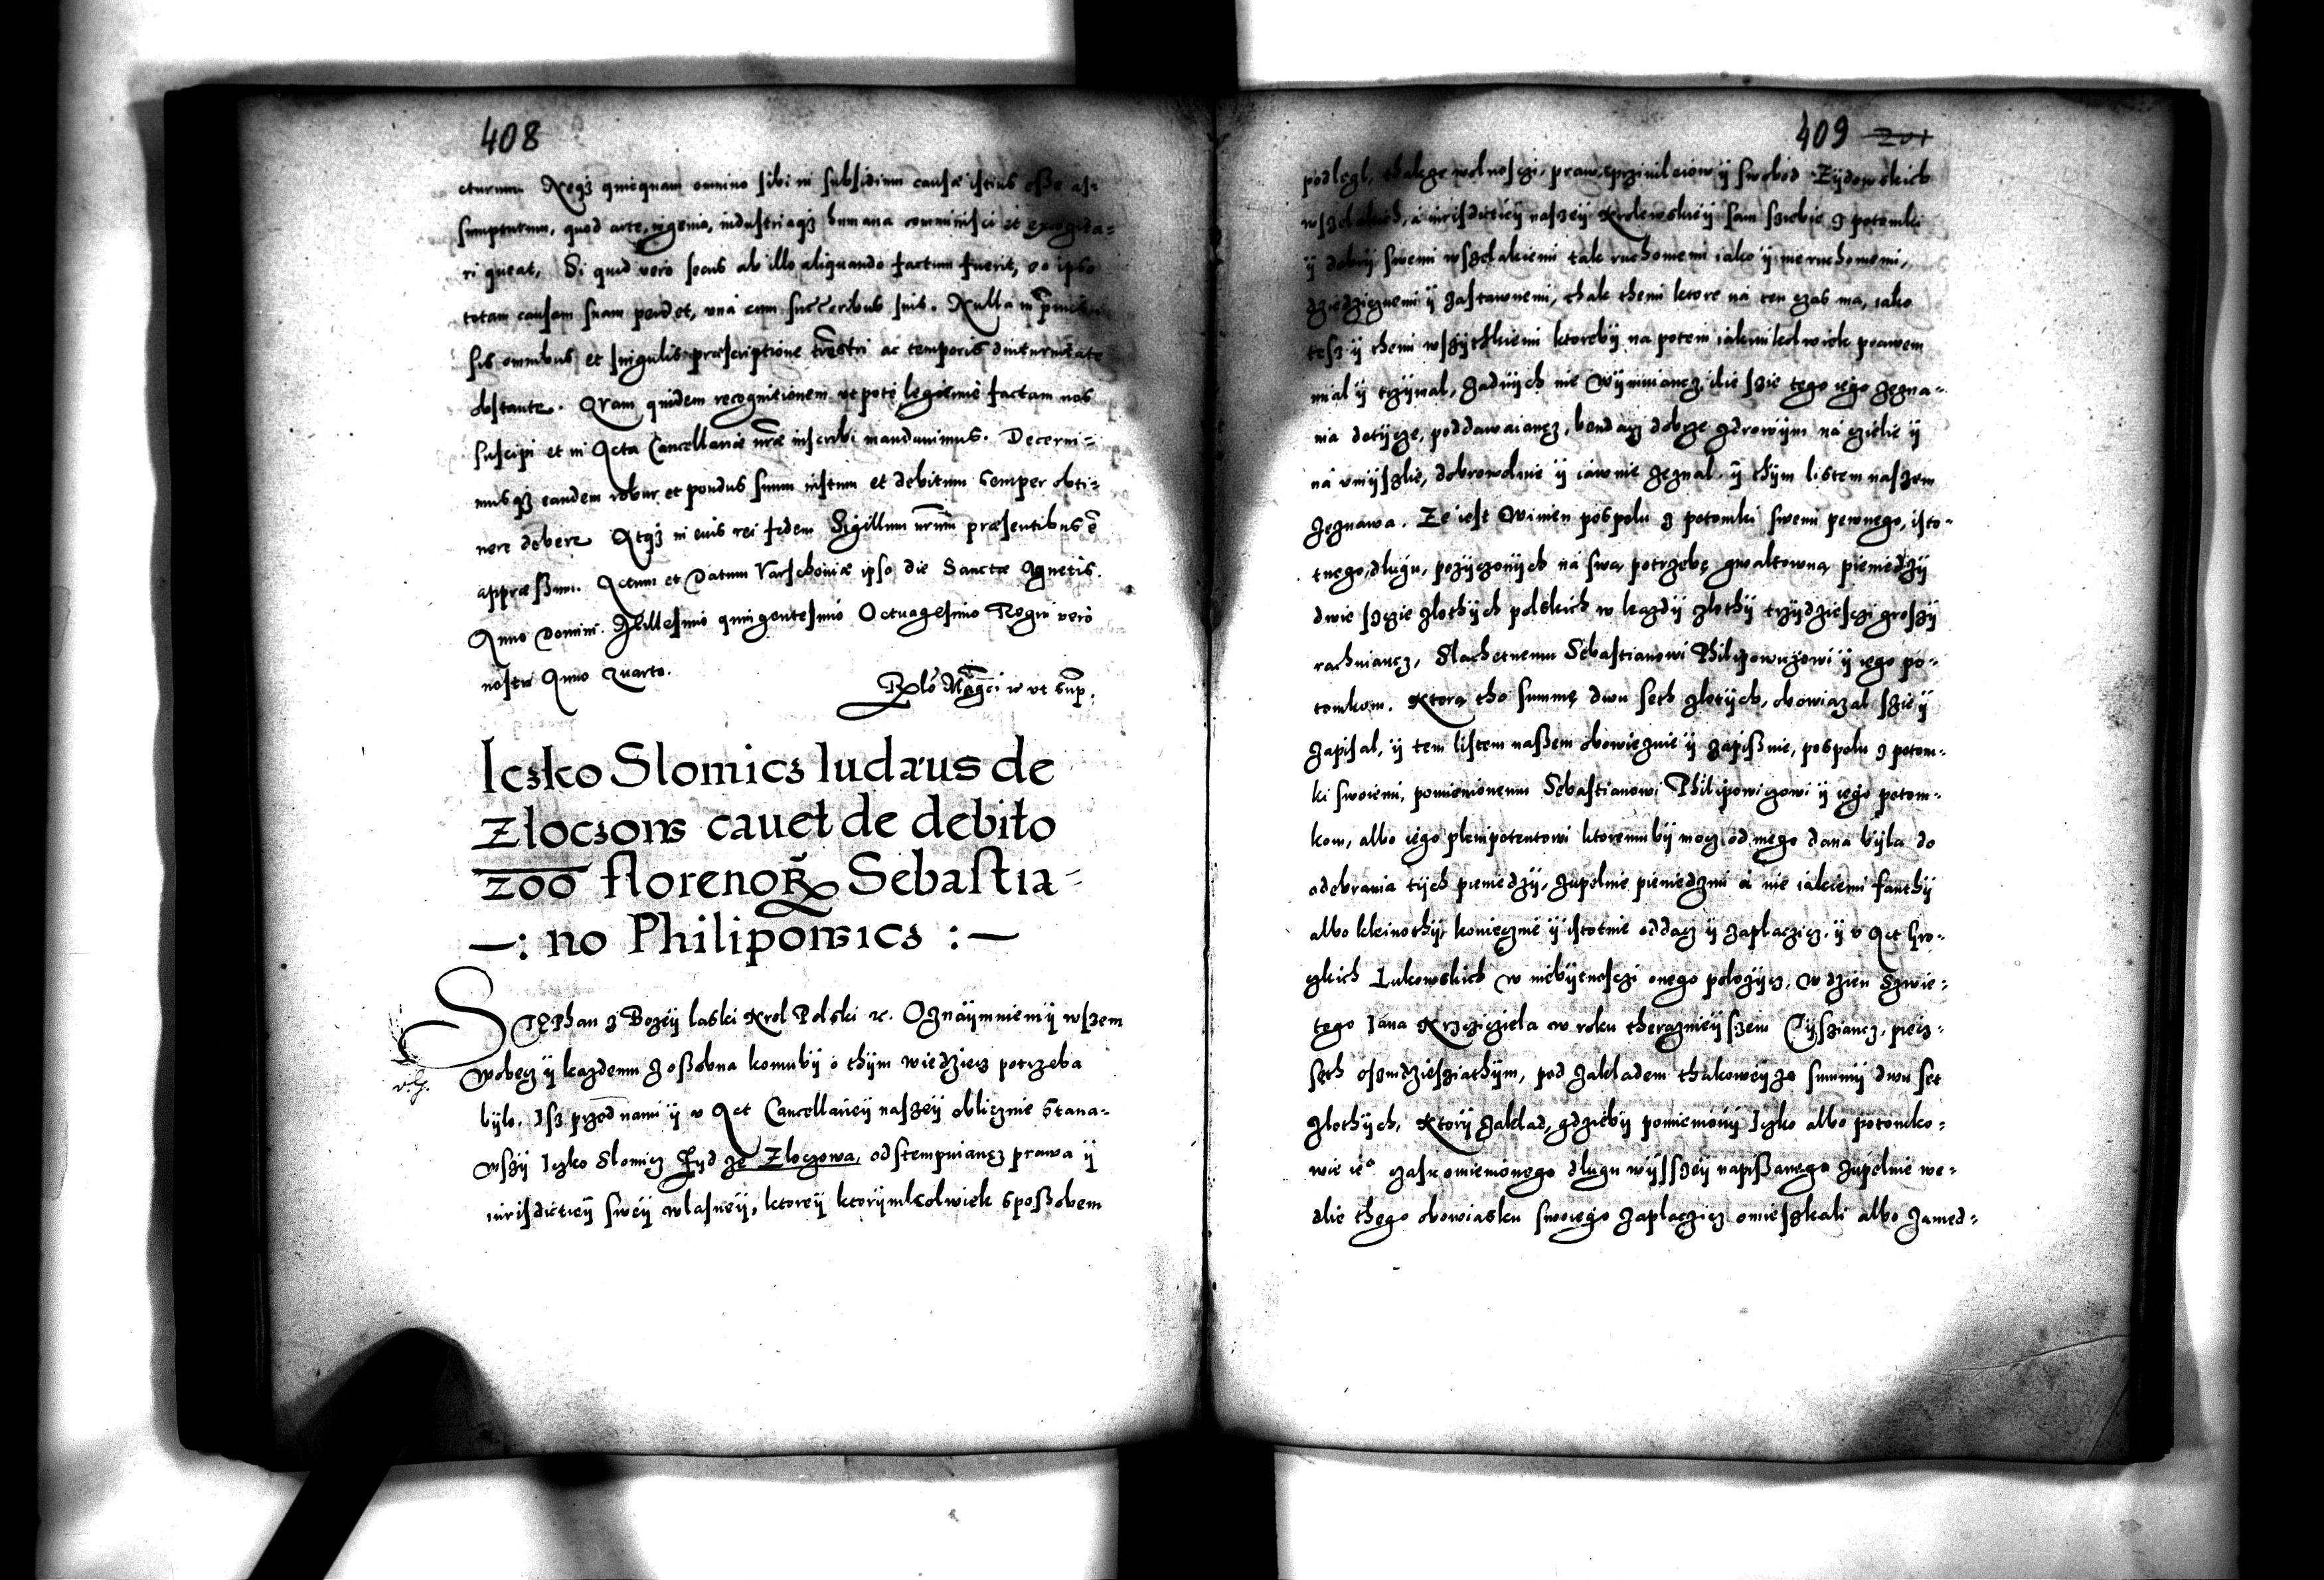 408
cturum. Neqз quicquam omnino sibi in subsidium causæ istius esse as-
sumpturum, quod arte, ingenio, industriaqз humana comminisci et excogita-
ri queat, Si quid vero secus ab illo aliquando factum fuerit, eo ipso
totam causam suam perdet, una cum successoribus suis. Nulla in præmis-
sis omnibus et singulis præscriptione trestri ac temporis diuturnitate
obstante. Quam quidem recognitionem ut pote legitime factam nos
suscipi et in Acta Cancellariæ nræ inscribi mandauimus. Decerni-
musqз eandem robur et pondus suum iustum et debitum semper obti-
nere debere Atqз in cuius rei fidem Sigillum nrum præsentibus e
appræssum. Actum et Datum Varschoviæ ipso die Sanctæ Agnetis.
Anno Domini Millesimo quingentesimo Octuagesimo Regni vero
nostri Anno Quarto.
ut sup.
Iczko Slomicz Iudæus de
Zloczow cauet de debito
200 florenoR Sebastia-
—: no Philipowicz :—
STEPhan z Bozey laski Krol Polski etc. Oznaymniemy wszem
wobecz y kazdemu zossobna komuby o thym wiedziecz potrzeba
bylo. Isz przed nami y v Act Cancellariey naszey oblicznie Stana-
wszy Iczko Slomicz Zyd ze Zloczowa, odstempuiancz prawa y
iurisdictiey swey wlasney, ktorey ktorymkolwiek sposobem
409 201
podlegl, thakze wolnosczi, praw, przivileiow y swobod Zydowskich
wszelakich, a iurisdictiey naszey Krolewskiey sam sziebie z potomki
y dobry swemi wszelakiemi tak ruchomemi iako y nieruchomemi,
dziedzicznemi y zastawnemi, thak themi ktore na ten czas ma, iako
tesz y themi wszythkiemi ktoreby na potem iakimkolwiek prawem
mial y trzymal, zadnych nie wymuiancz, ilie szie tego iego zezna-
nia dotycze, poddawaiancz, bendacz dobrze zdrowym na czielie y
na vmyszlie, dobrowolnie y iawnie zeznal, y thym listem naszem
zeznawa. Ze iest winien pospolu z potomki swemi pewnego, isto-
tnego, dlugu, pozyczonych na swa potrzebę gwaltowna pieniedzy
dwie sczie zlothych polskich w kazdy zlothy trzydziesczi groszy
rachuiancz, Slachetnemu Sebastianowi Philipowiczowi y iego po-
tomkom. Ktora tho summę dwu seth zlotych, obowiazal szie y
zapisal, y tem listem nassem obowieznie y zapissnie, pospolu z potom-
ki swoiemi, pomienionemu Sebastianowi Philipowiczowi y iego potom-
kom, albo iego plenipotentowi ktoremuby mocz od niego dana byla do
odebrania tych pieniedzy, zupelnie pieniedzmi a nie iakiemi fanthy
albo kleinothy, koniecznie y istotnie oddacz y zaplaczicz, y v Act Gro-
zkich Lukowskich w niebytnosczi onego polozycz, w dzien Szwie-
tego Iana Krzcziciela w roku therazniejszem Tysziancz, piecz-
seth oszmdziesziathym, pod zakladem thakoweyze summy dwu set
zlothych, Ktory zaklad, gdzieby pomieniony Iczko albo potomko-
wie ieo zasz omienionego dlugu wysszey napissanego zupelnie we-
dle thego obowiasku swoiego zaplaczicz omieszkali albo zamed-